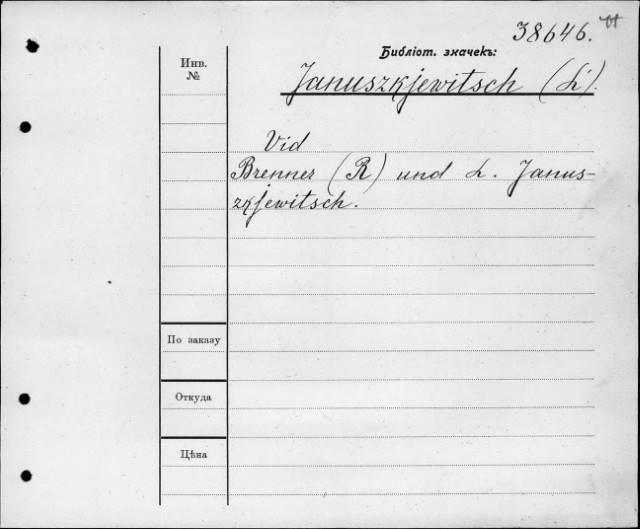 38646.
Библіот. значекъ:
Januszkjewitsch (L).
Инв.
№
Vid
Brenner (R) und L. Janus-
zkjewitsch.
По заказу
Откуда
Цѣна